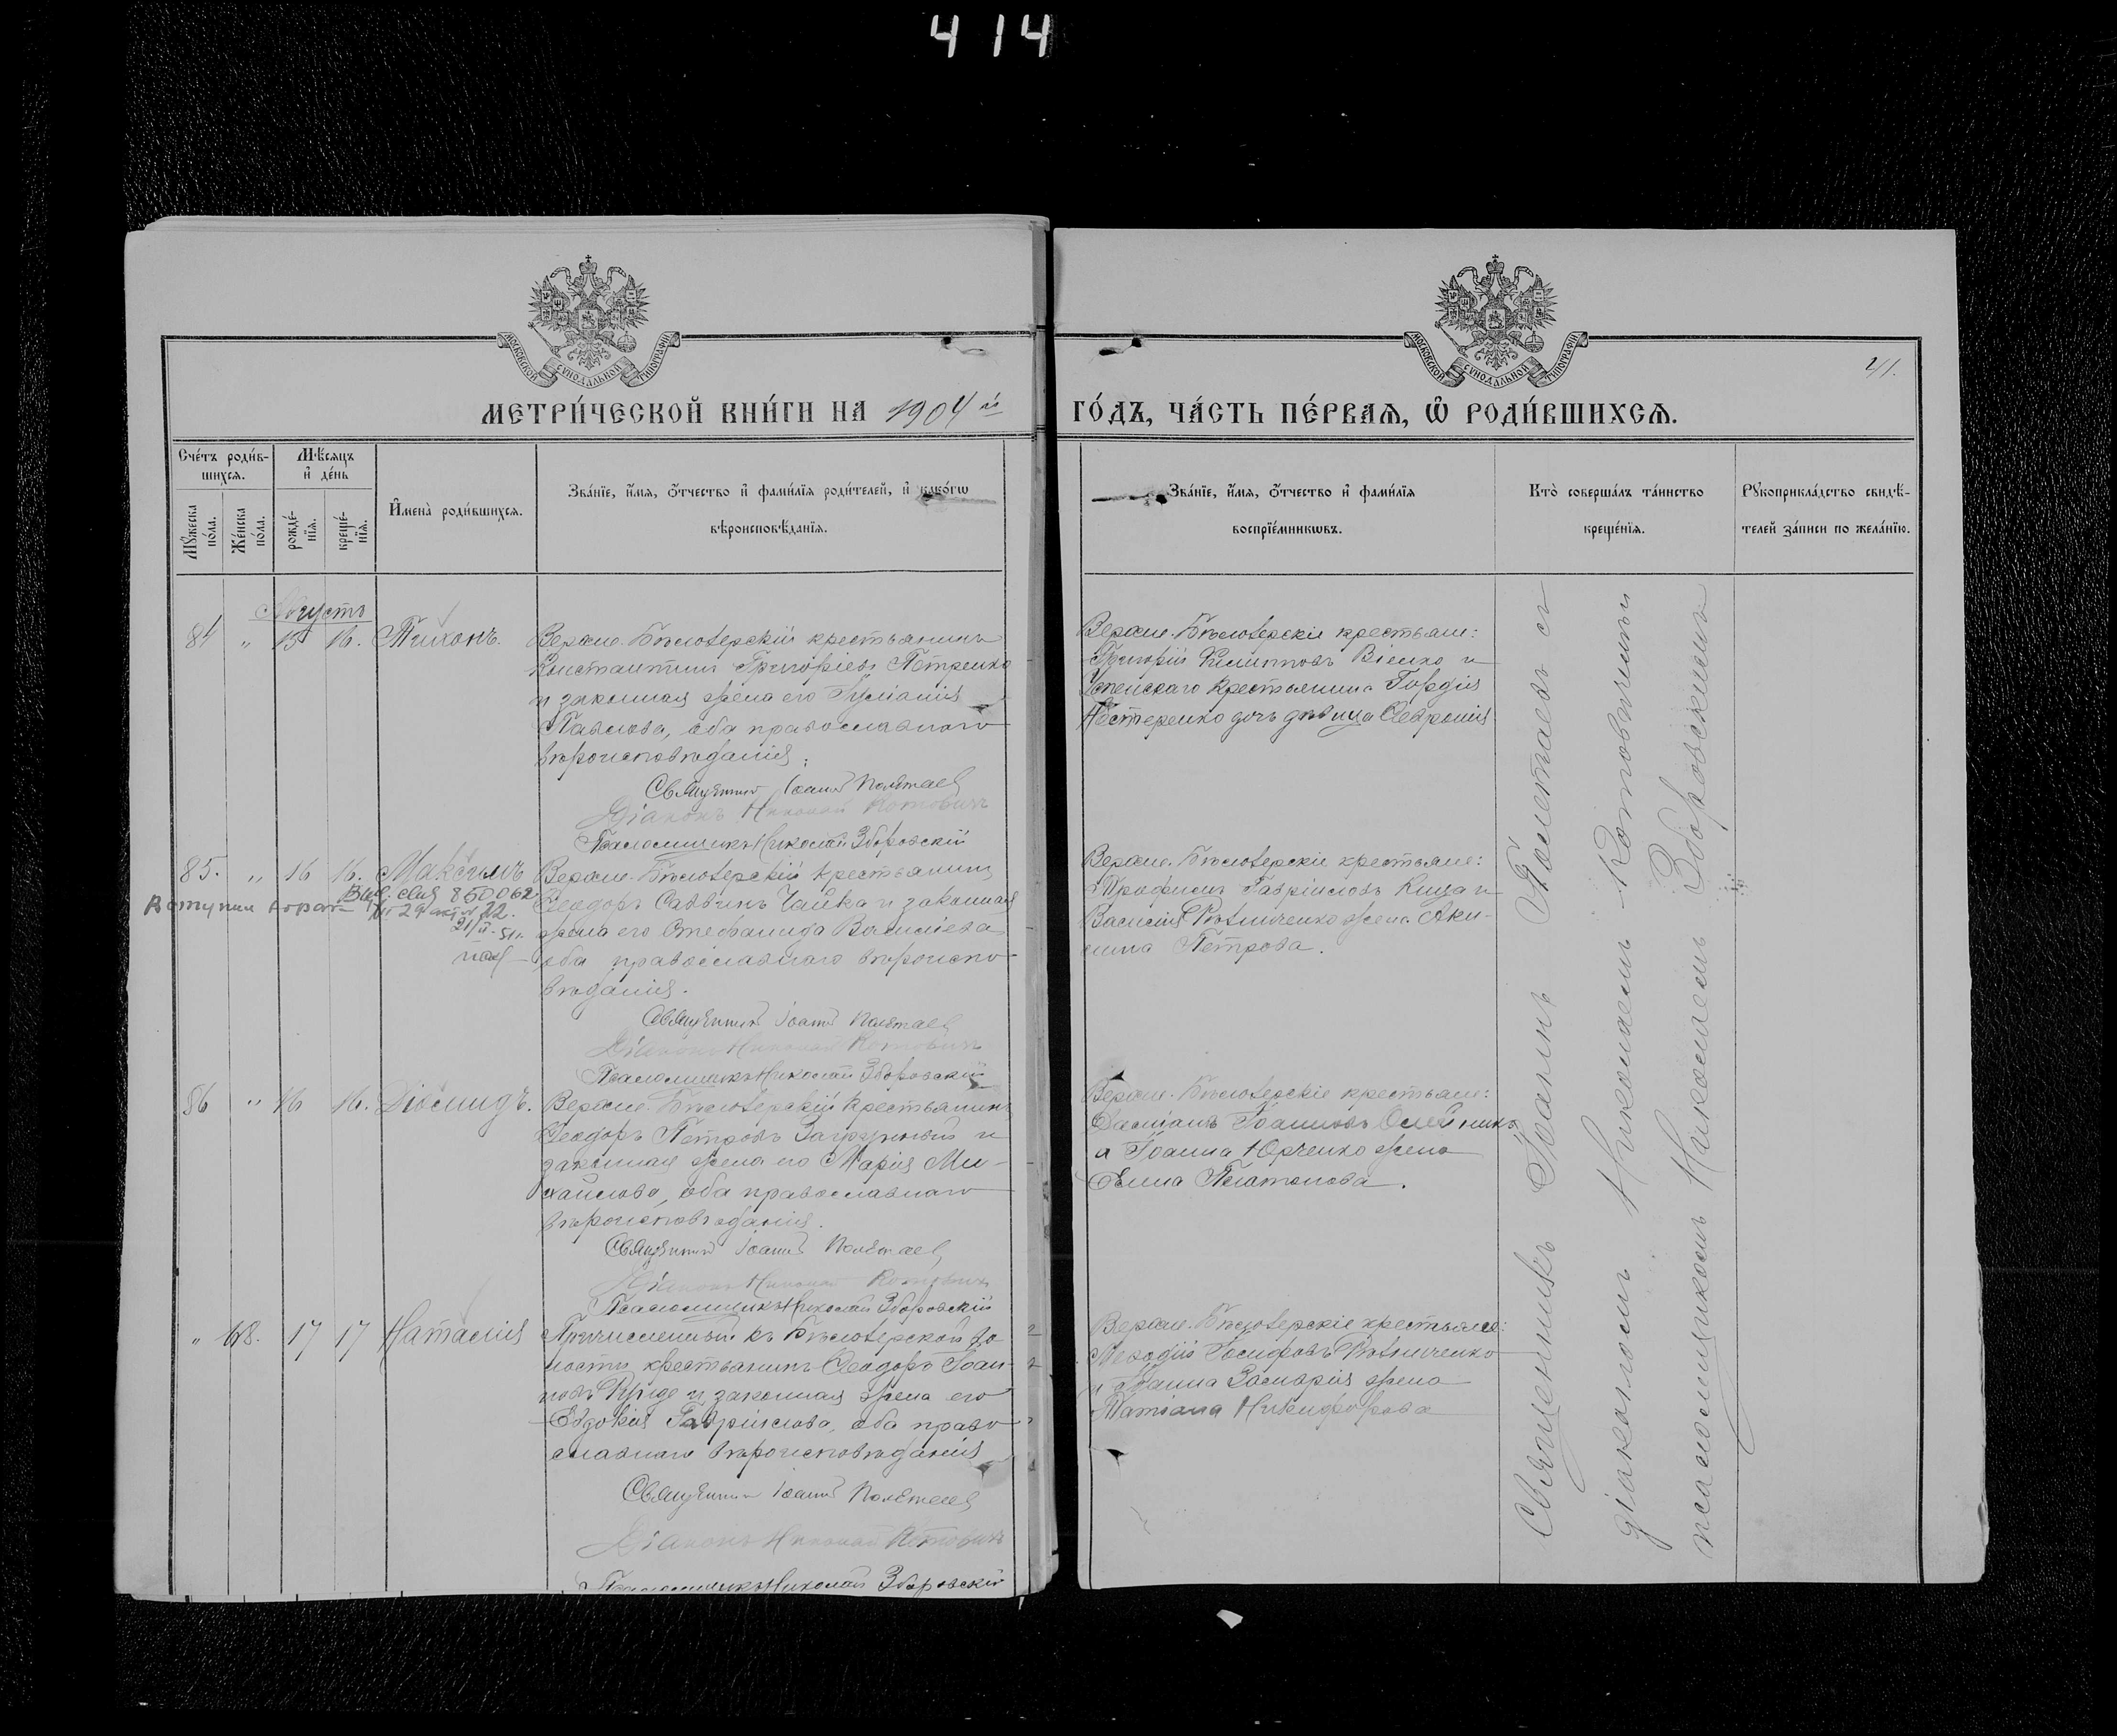 414
МОСКОВСКОЙ СѴНОДАЛЬНОЙ ТИПОГРАФІИ
МОСКОВСКОЙ СѴНОДАЛЬНОЙ ТИПОГРАФІИ
41.
МЕТРИ́ЧЕСКОЙ КНИ́ГИ НА 1904 й
ГО́ДЪ, ЧА́СТЬ ПЕ́РВАЯ, Ѡ҆ РОДИ́ВШИХСЯ.
Сче́тъ роди́в-
шихся.
Мꙋ́жеска
по́ла.
Же́нска
по́ла.
Мѣ́сяцъ
и҆ де́нь
рожде́-
нїя.
креще́-
нїя.
И҆мена̀ роди́вшихся.
Зва́нїе, и҆́мя, ѻ҆́тчество и҆ фами́лїя роди́телей, и҆ како́гѡ
вѣроисповѣ́данїя.
Зва́нїе, и҆́мя, ѻ҆́тчество и҆ фами́лїя
воспрїе́мникѡвъ.
Кто̀ соверша́лъ та́инство
креще́нїя.
Рꙋкоприкла́дство свидѣ́-
телей за́писи по жела́нїю.
Августъ
84 " 15 16. Тихонъ.
Верхне-Бѣлозерскій крестьянинъ
Константинъ Григоріевъ Петренко
и законная жена его
Павлова, оба православнаго
вѣроисповѣданія.
Священникъ Іоаннъ Полетаевъ
Діаконъ Николай Котовичъ
Псаломщикъ Николай Зборовскій
Верхне-Бѣлозерскіе крестьяне:
Григорій Филипповъ и
Успенскаго крестьянина Гордія
Нестеренко дочь дѣвица Февронія
85. " 16 16. Максимъ
850062
21/II-51г.
Верхне-Бѣлозерскій крестьянинъ
Ѳеодоръ Саввинъ Чайка и законная
жена его Стефанида Васильева
оба православнаго вѣроиспо-
вѣданія.
Священникъ Іоаннъ Полетаевъ
Діаконъ Николай Котовичъ
Псаломщикъ Николай Зборовскій
Верхне-Бѣлозерскіе крестьяне:
Трофимъ Гавріиловъ Куца и
Василія жена Аки-
лина Петрова.
86 " 16 16. Діомидъ.
Верхне-Бѣлозерскій крестьянинъ
Ѳеодоръ Петровъ и
законная жена его Марія Ми-
хайлова, оба православнаго
вѣроисповѣданія.
Священникъ Іоаннъ Полетаевъ
Діаконъ Николай Котовичъ
Псаломщикъ Николай Зборовскій
Верхне-Бѣлозерскіе крестьяне:
Даміанъ Іоанновъ Олейникъ
и Іоанна Юрченко жена
Елена Платонова.
" 68. 17 17 Наталія
Причисленный къ Бѣлозерской во-
лости крестьянинъ Ѳеодоръ Іоан-
новъ и законная жена его
Евдокія Гавріилова, оба право-
славнаго вѣроисповѣданія
Священникъ Іоаннъ Полетаевъ
Діаконъ Николай Котовичъ
Псаломщикъ Николай Зборовскій
Верхне-Бѣлозерскіе крестьяне:
Меѳодій Іосифовъ
и Іоанна жена
Татіана Никифорова
Священникъ Іоаннъ Полетаевъ съ
діакономъ Николаемъ Котовичемъ и
псаломщикомъ Николаемъ Зборовскимъ